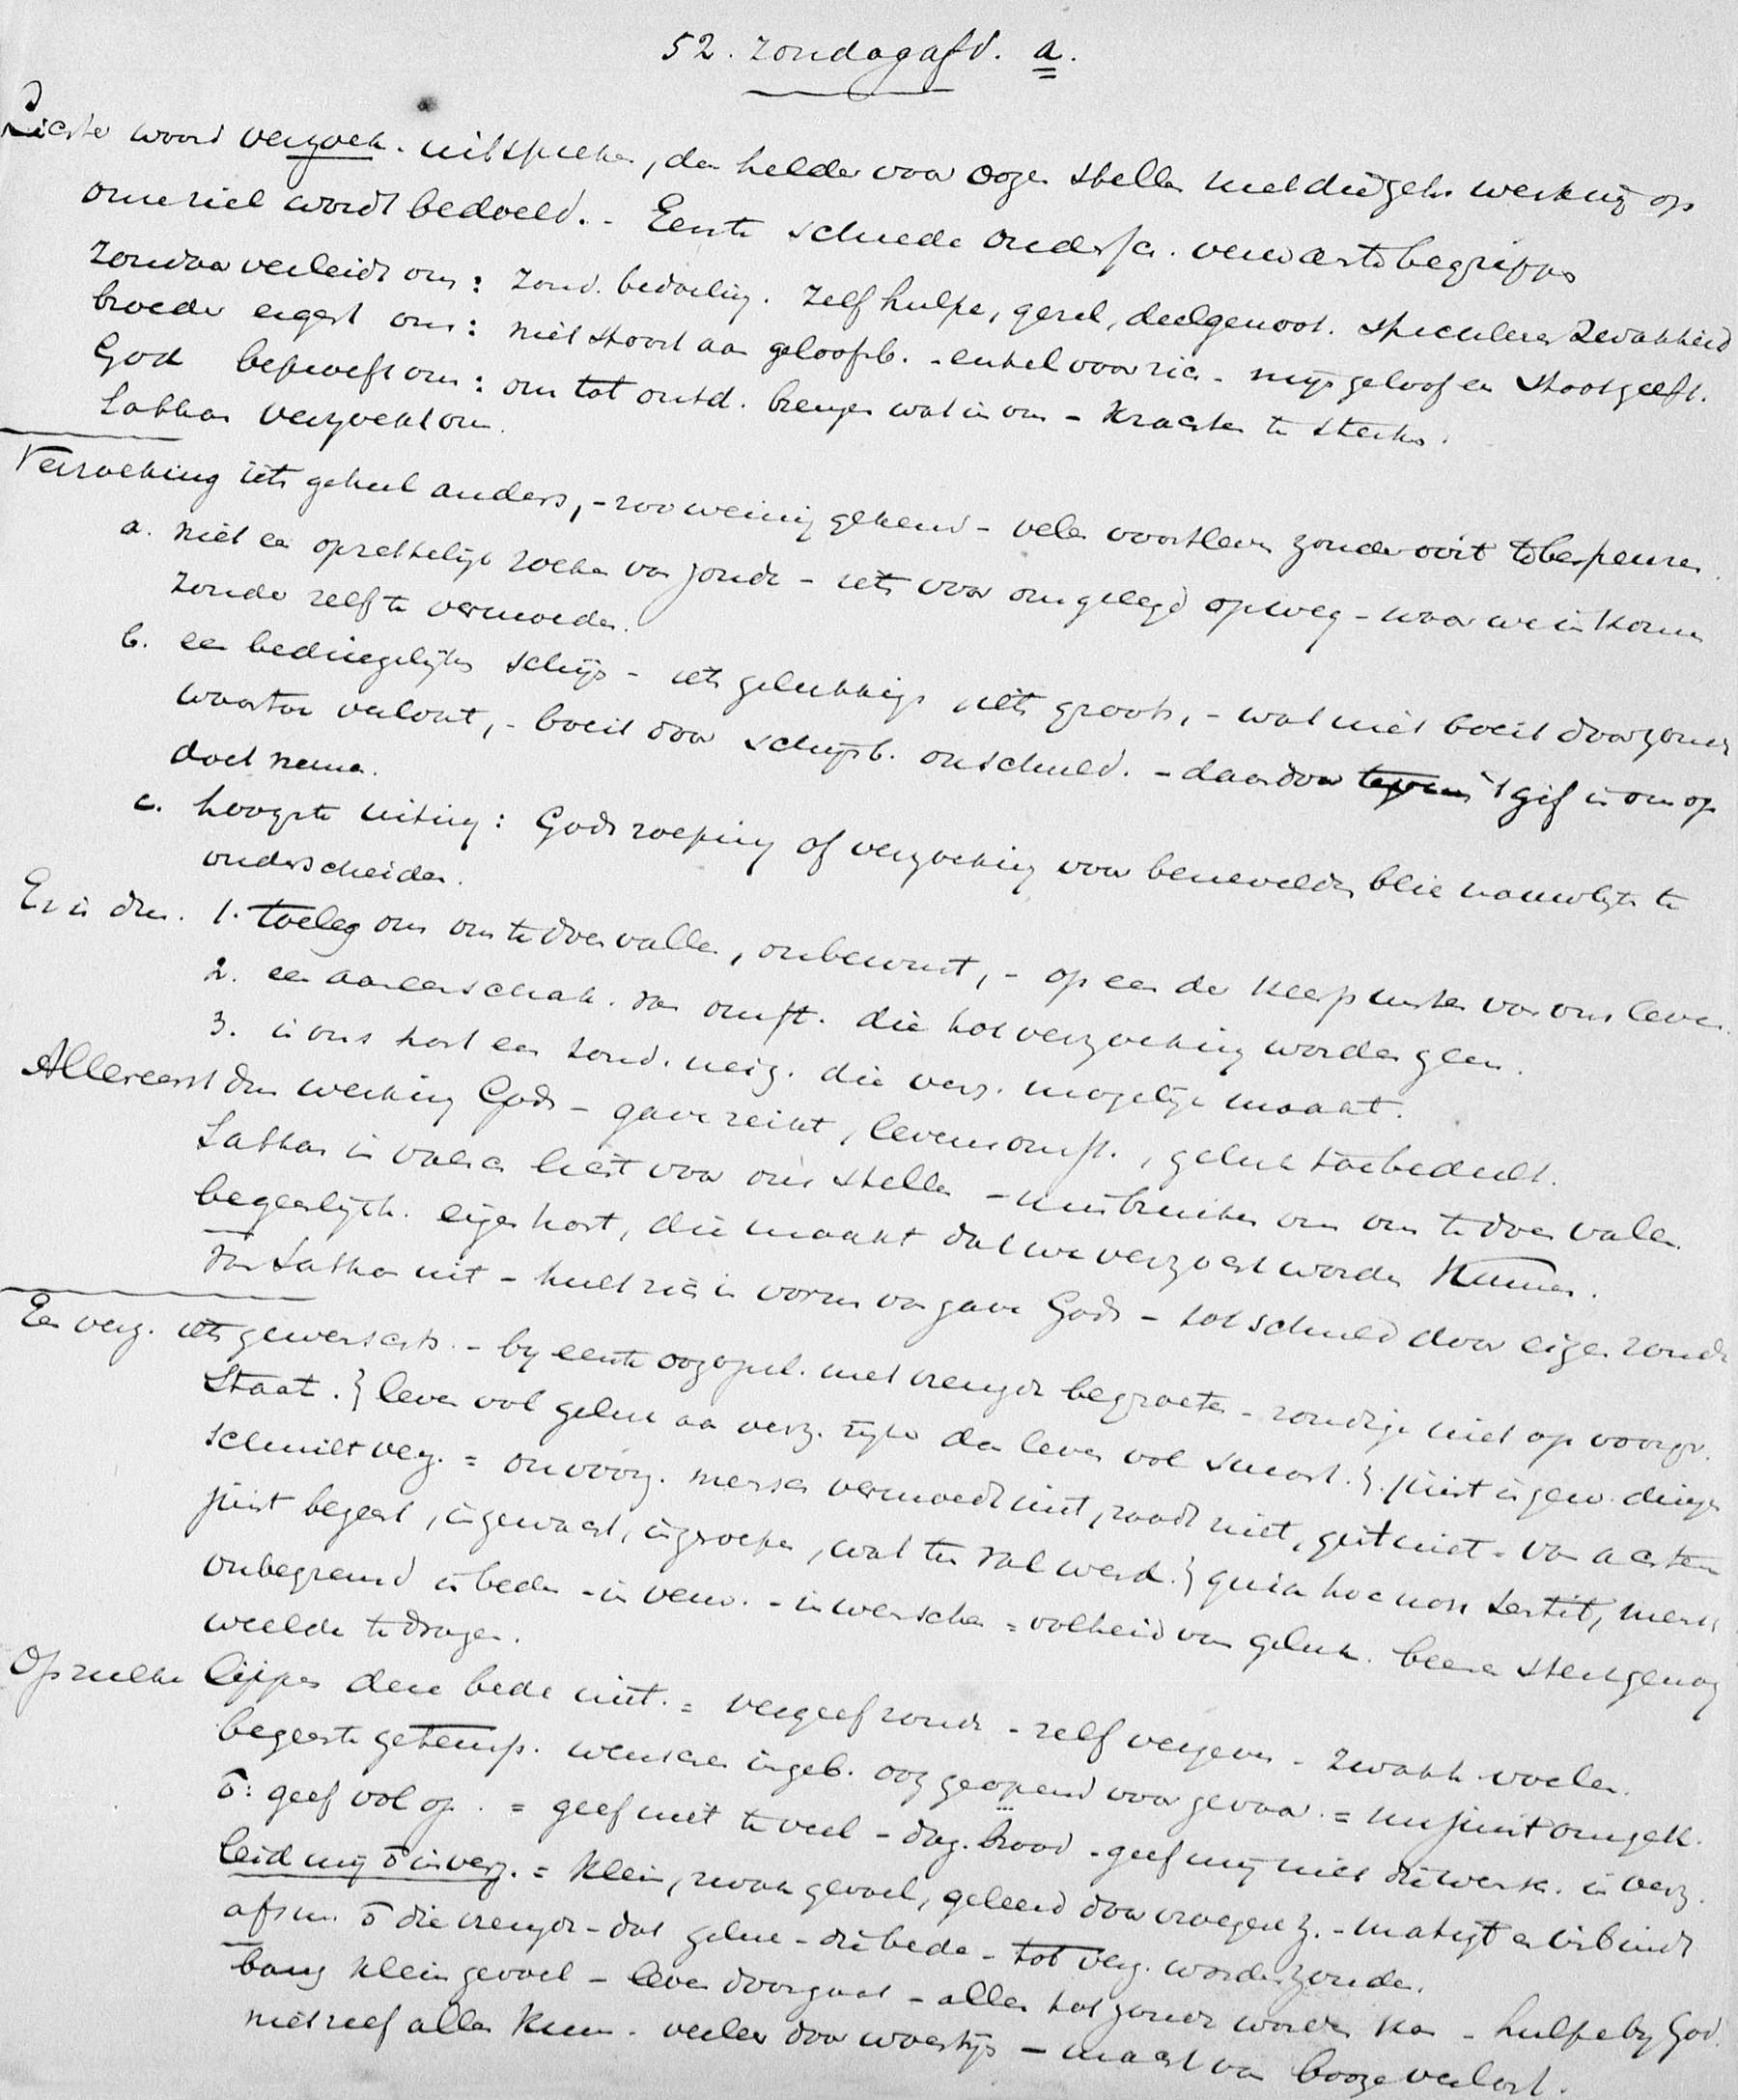 52. Zondagafd. a.
Lichte woord verzoek. uitspreken, dan helder voor oogen stellen met die zek. werking op
onze ziel wordt bedoeld. - Eerste scheede onderscr. verwarde begrippen
Zondaar verleidt ons: zond. bedoeling. Zelf hulpe, gezel, deelgenoot. speculeren zwakheid
broeder ergert ons: niet stoort aan geloofsb. - enkel voor zich - mijn geloof en stoot geeft.
God beproeft ons: om tot ontd. brengen wat in ons - Krachten te sterken.
Satan verzoekt ons.
Verzoeking iets geheel anders, - zoo weinig gekend - velen voortleven zonder ooit te bespeuren
a. niet een opzettelijk zoeken van zonde - iets voor ons gelegd op weg - waar we in komen
zonde zelf te vermoeden.
b. een bedriegelijke schijn - iets gelukkigs iets groots, - wat niet boeit door zonde
waartoe verlokt, - boeit door schijnb. onschuld. - daardoor 't gif in ons op
doet nemen.
c. hoogste uiting: Gods roeping of verzoeking voor benevelden blik nauwlijks te
onderscheiden.
Er is dus. 1. toeleg om ons te doen vallen, onbewust, - op een der keerpunten van ons leven.
2. een aaneenschak. van omst. die tot verzoeking worden
3. in ons hart een zond. neig. die verz. mogelijk maakt.
Allereerst dus werking Gods - gave reikt, levensomst., geluk toebedeelt.
Satan in valsch licht voor ons stellen - misbruiken om ons te doen vallen.
begeerlijkh. eigen hart, die maakt dat we verzocht worden kunnen.
Van Satan uit - hult zich in vorm van gave Gods - tot schuld door eigen zonde
Een verz. iets gewenschts. - by eerste oogopsl. met vreugde begroeten - zondige niet op voorgr.
staat. } leven vol geluk aan verz. rijker dan leven vol smart. } juist in gew. dingen
schuilt verz. = onvoorz. mensch vermoedt niet, raadt niet, gist niet - van achteren
juist begeerd, ingewacht, ingeroepen, wat ten val werd. } quia hoc non sentit, mensch
onbegrensd in beden - in verw. - in wenschen = volheid van geluk. beenen sterk genoeg
weelde te dragen.
Op zulke lippen deze bede niet. = vergeef zonde - zelf vergeven - zwakh. voelen.
begeerte getemp. wenschen ingeb. oog geopend voor gevaar. = nu juist omgek.
o: geef vol op. = geef niet te veel - dag. brood - geef mij niet die wensch. in verz.
leid mij o in verz. = klein, zwak gevoel, geleerd door vroegere z. - matigt en inbindt
afsm. o die vreugde - dat geluk - die bede - tot verz. worden zonde.
bang klein gevoel - leven doorgaat - alles tot zonde worden kan - hulpe by God.
niet zelf alles kunn. veilen door woestijn - macht van booze verlost.